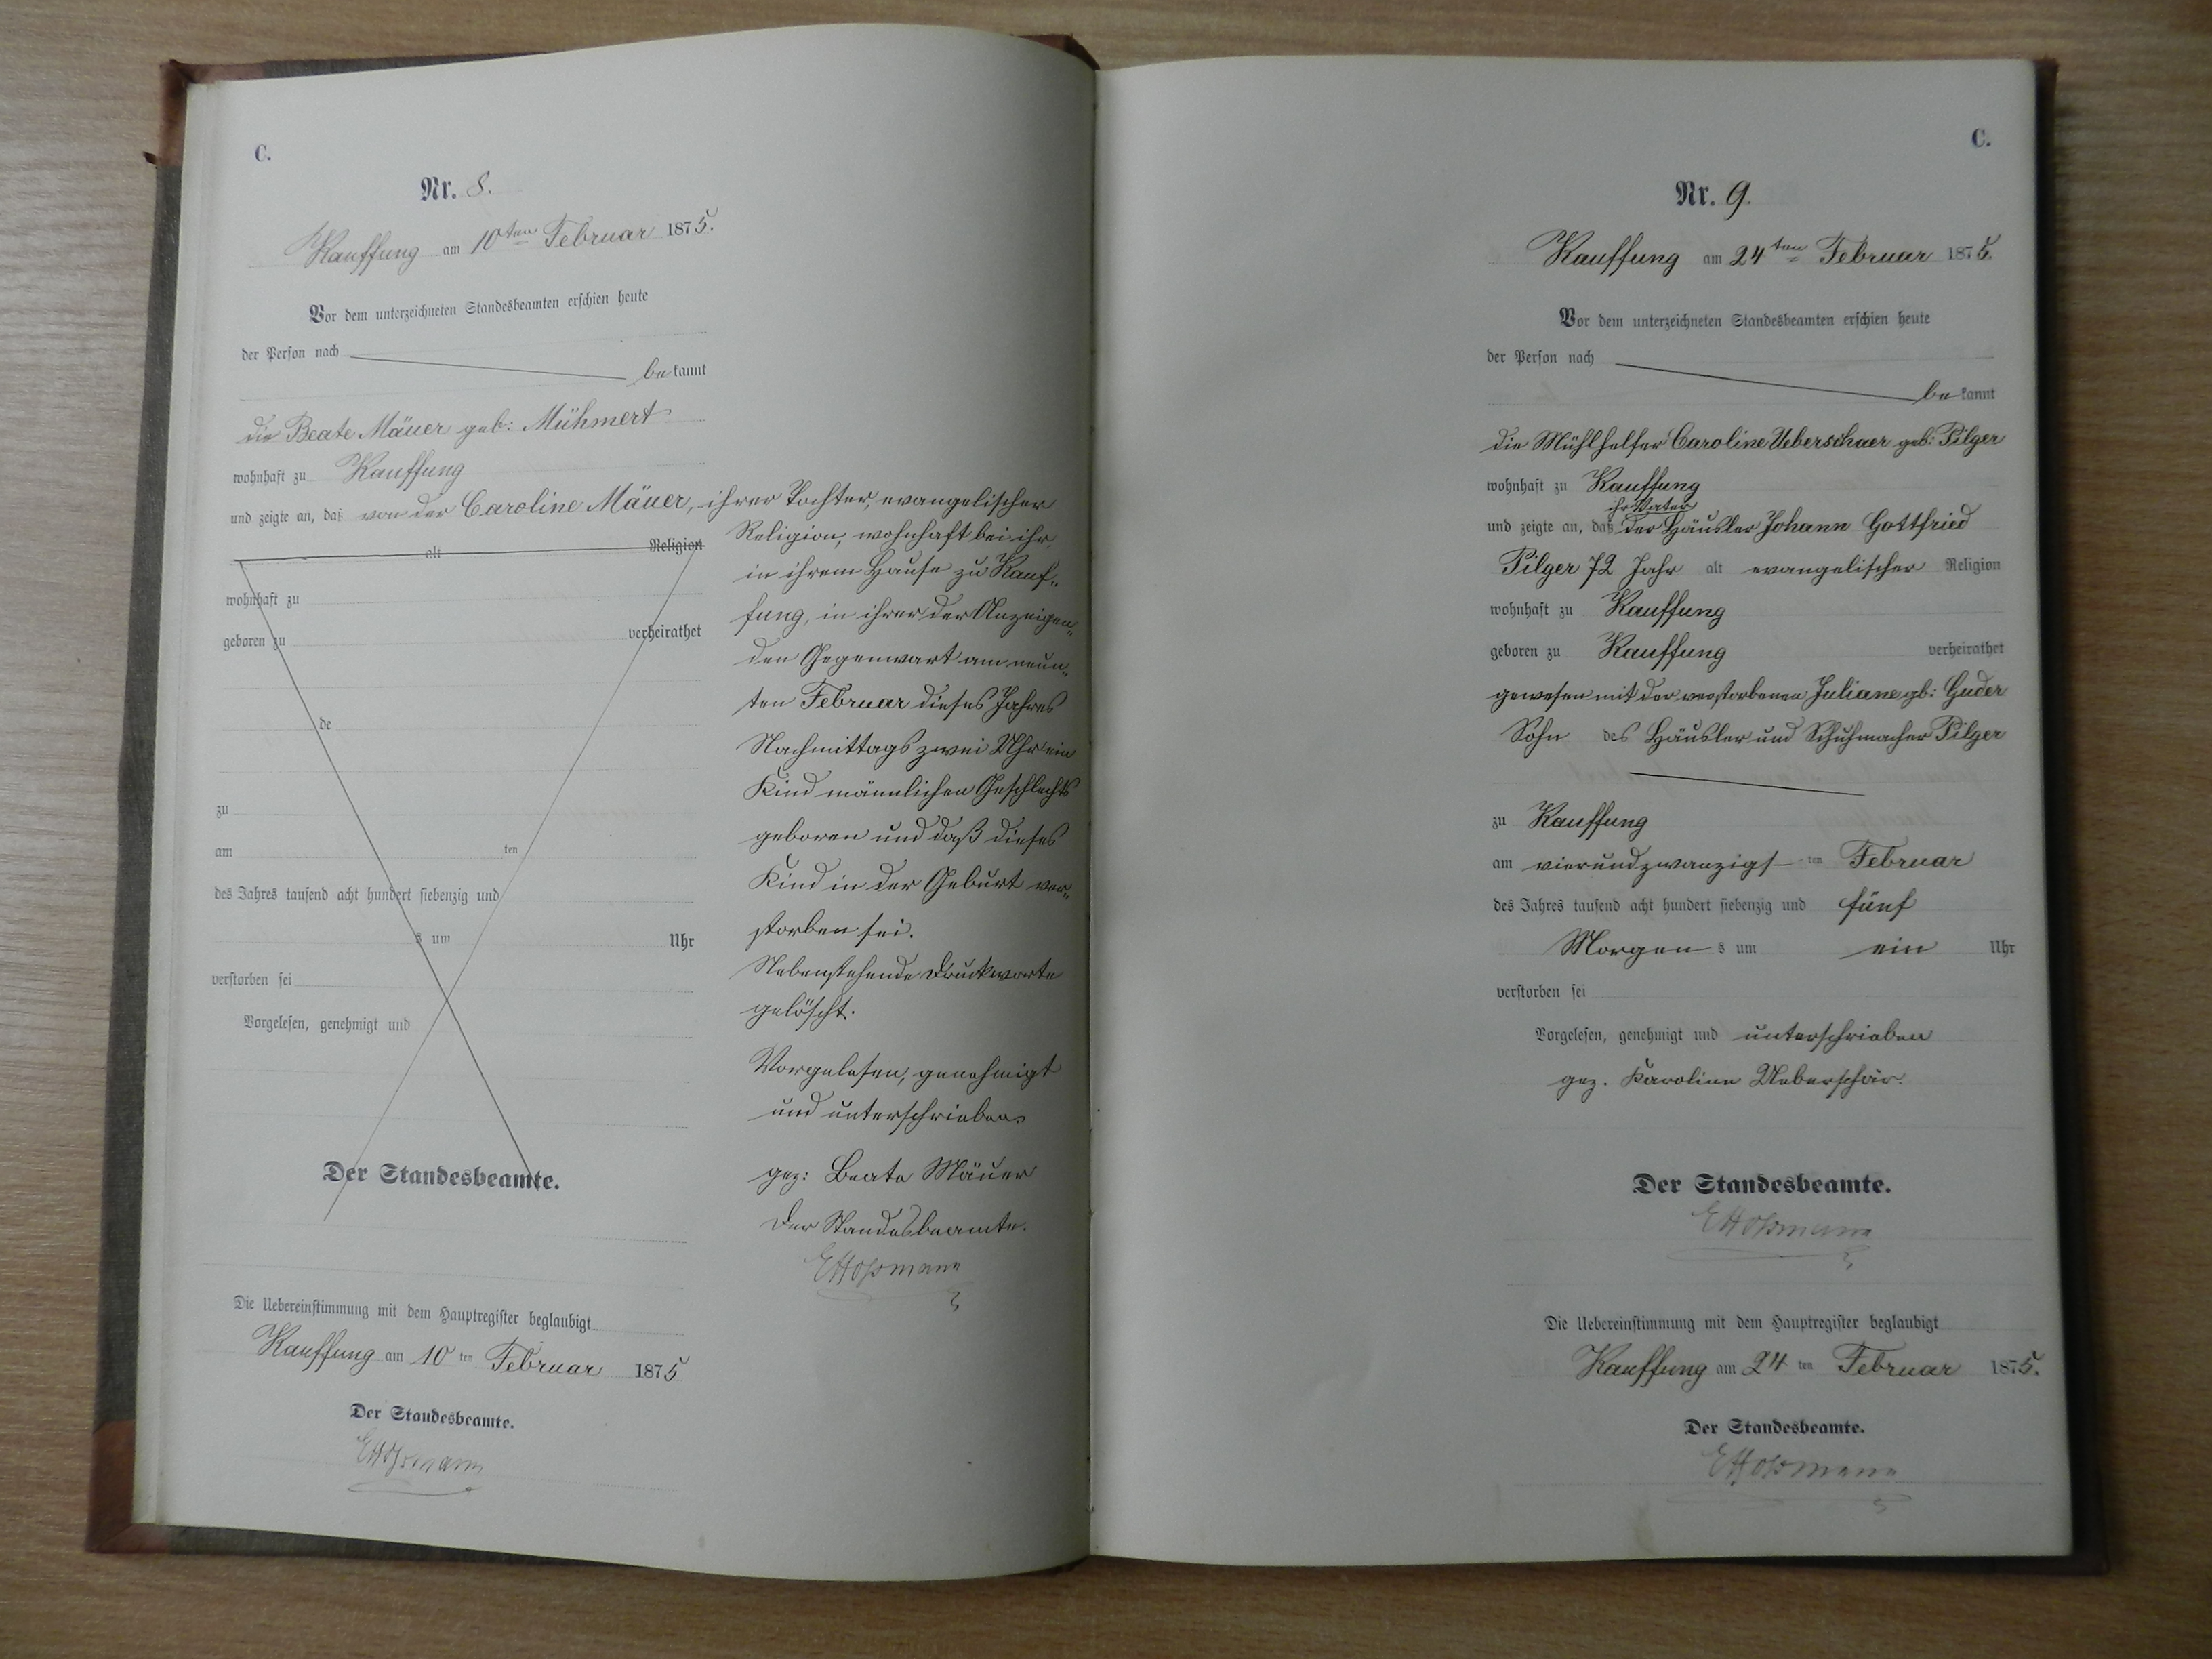 C.
Nr. 8.
Kauffung am 10ten Februar 1875.
Vor dem unterzeichneten Standesbeamten erschien heute
der Person nach
bekannt
die Beate Mäuer geb: Mühmert
wohnhaft zu Kauffung
und zeigte an, daß von der Caroline Mäuer, ihrer Tochter, evangelischer
alt Religion
Religion, wohnhaft bei ihr
in ihrem Hause zu Kauf-
wohnhaft zu
fung, in ihrer der Anzeigen-
geboren zu verheirathet
den Gegenwart am neun-
ten Februar dieses Jahres
de
Nachmittags zwei Uhr ein
Kind männlichen Geschlechts
zu
geboren und daß dieses
am ten
Kind in der Geburt ver-
des Jahres tausend acht hundert siebenzig und
storben sei.
s um Uhr
Nebenstehende Druckworte
verstorben sei
gelöscht.
Vorgelesen, genehmigt und
Vorgelesen, genehmigt
und unterschrieben
Der Standesbeamte.
gez: Beate Mäuer
Der Standesbeamte.
Die Uebereinstimmung mit dem Hauptregister beglaubigt
Kauffung am 10 ten Februar 1875
Der Standesbeamte.
C.
Nr. 9.
Kauffung am 24ten Februar 1875.
Vor dem unterzeichneten Standesbeamten erschien heute
der Person nach
bekannt
die Mühlhelfer Caroline Ueberschaer geb: Pilger
wohnhaft zu Kauffung
ihr Vater
und zeigte an, daß der Häusler Johann Gottfried
Pilger 72 Jahr alt evangelischer Religion
wohnhaft zu Kauffung
geboren zu Kauffung verheirathet
gewesen mit der verstorbenen Juliane gb: Guder
Sohn des Häusler und Schuhmacher Pilger
zu Kauffung
am vierundzwanzigsten Februar
des Jahres tausend acht hundert siebenzig und fünf
Morgens um ein Uhr
verstorben sei
Vorgelesen, genehmigt und unterschrieben
gez. Karoline Ueberschär.
Der Standesbeamte.
Die Uebereinstimmung mit dem Hauptregister beglaubigt
Kauffung am 24 ten Februar 1875.
Der Standesbeamte.